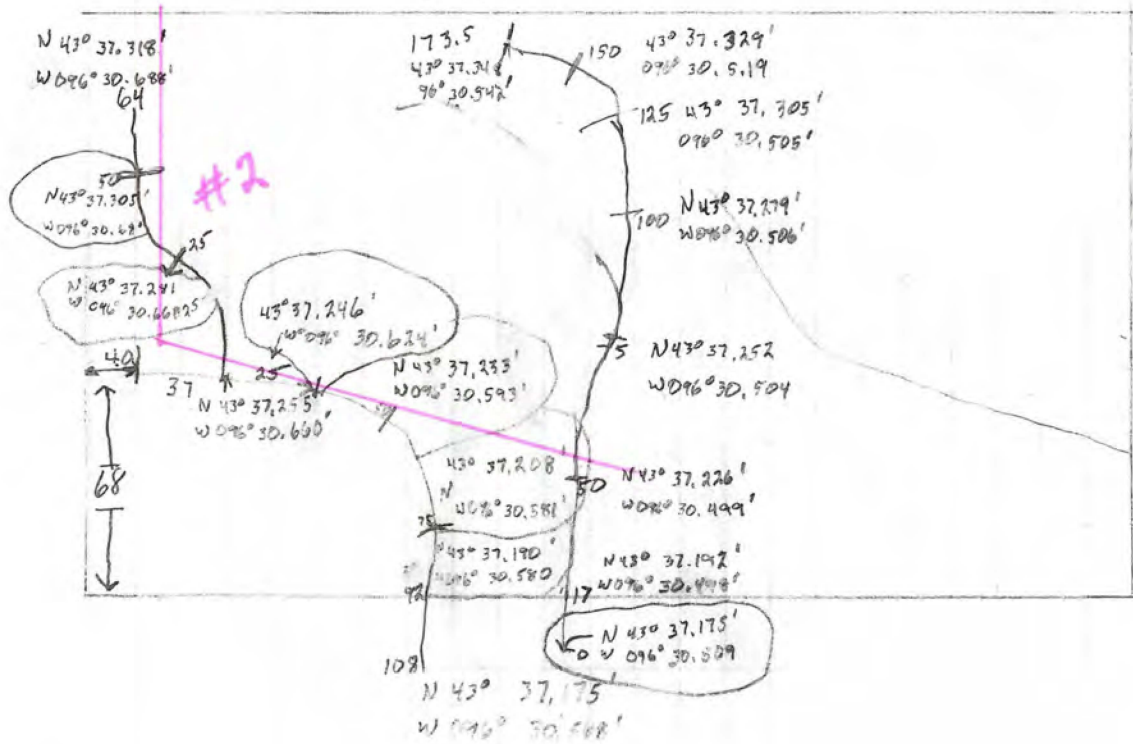 N 43° 37.318'
W 096° 30.688'
64
50
N 43° 37.305'
W 096° 30.68'
#2
25
N 43° 37.281
W 096° 30.66825
40
37
N 43° 37.255'
W 096° 30.660'
68
43° 37.246'
W 096° 30.624'
25
N 43° 37.233'
W 096° 30.593'
43° 37.208'
N
W 096° 30.581'
75
N 43° 37.190'
096° 30.580
92
108
N 43° 37.175'
W 096°
173.5
43° 37.348
96° 30.542'
150
43° 37.329'
096° 30.519
125
43° 37.305'
096° 30.505'
100
N 43° 37.279'
W 096° 30.506'
N 43° 37.252
W 096° 30.504
50
N 43° 37.226'
W 096° 30.499'
N 43° 37.192'
W 096° 30.498'
17
N 43° 37.175'
0 W 096° 30.509